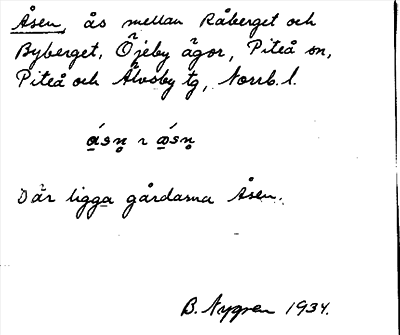 Åsen, ås mellan Råberget och
Byberget, Öjeby ägor, Piteå sn,
Piteå och Älvsby tg, Norrb. l.
Där ligga gårdarna Åsen.
B. Nygren 1934.